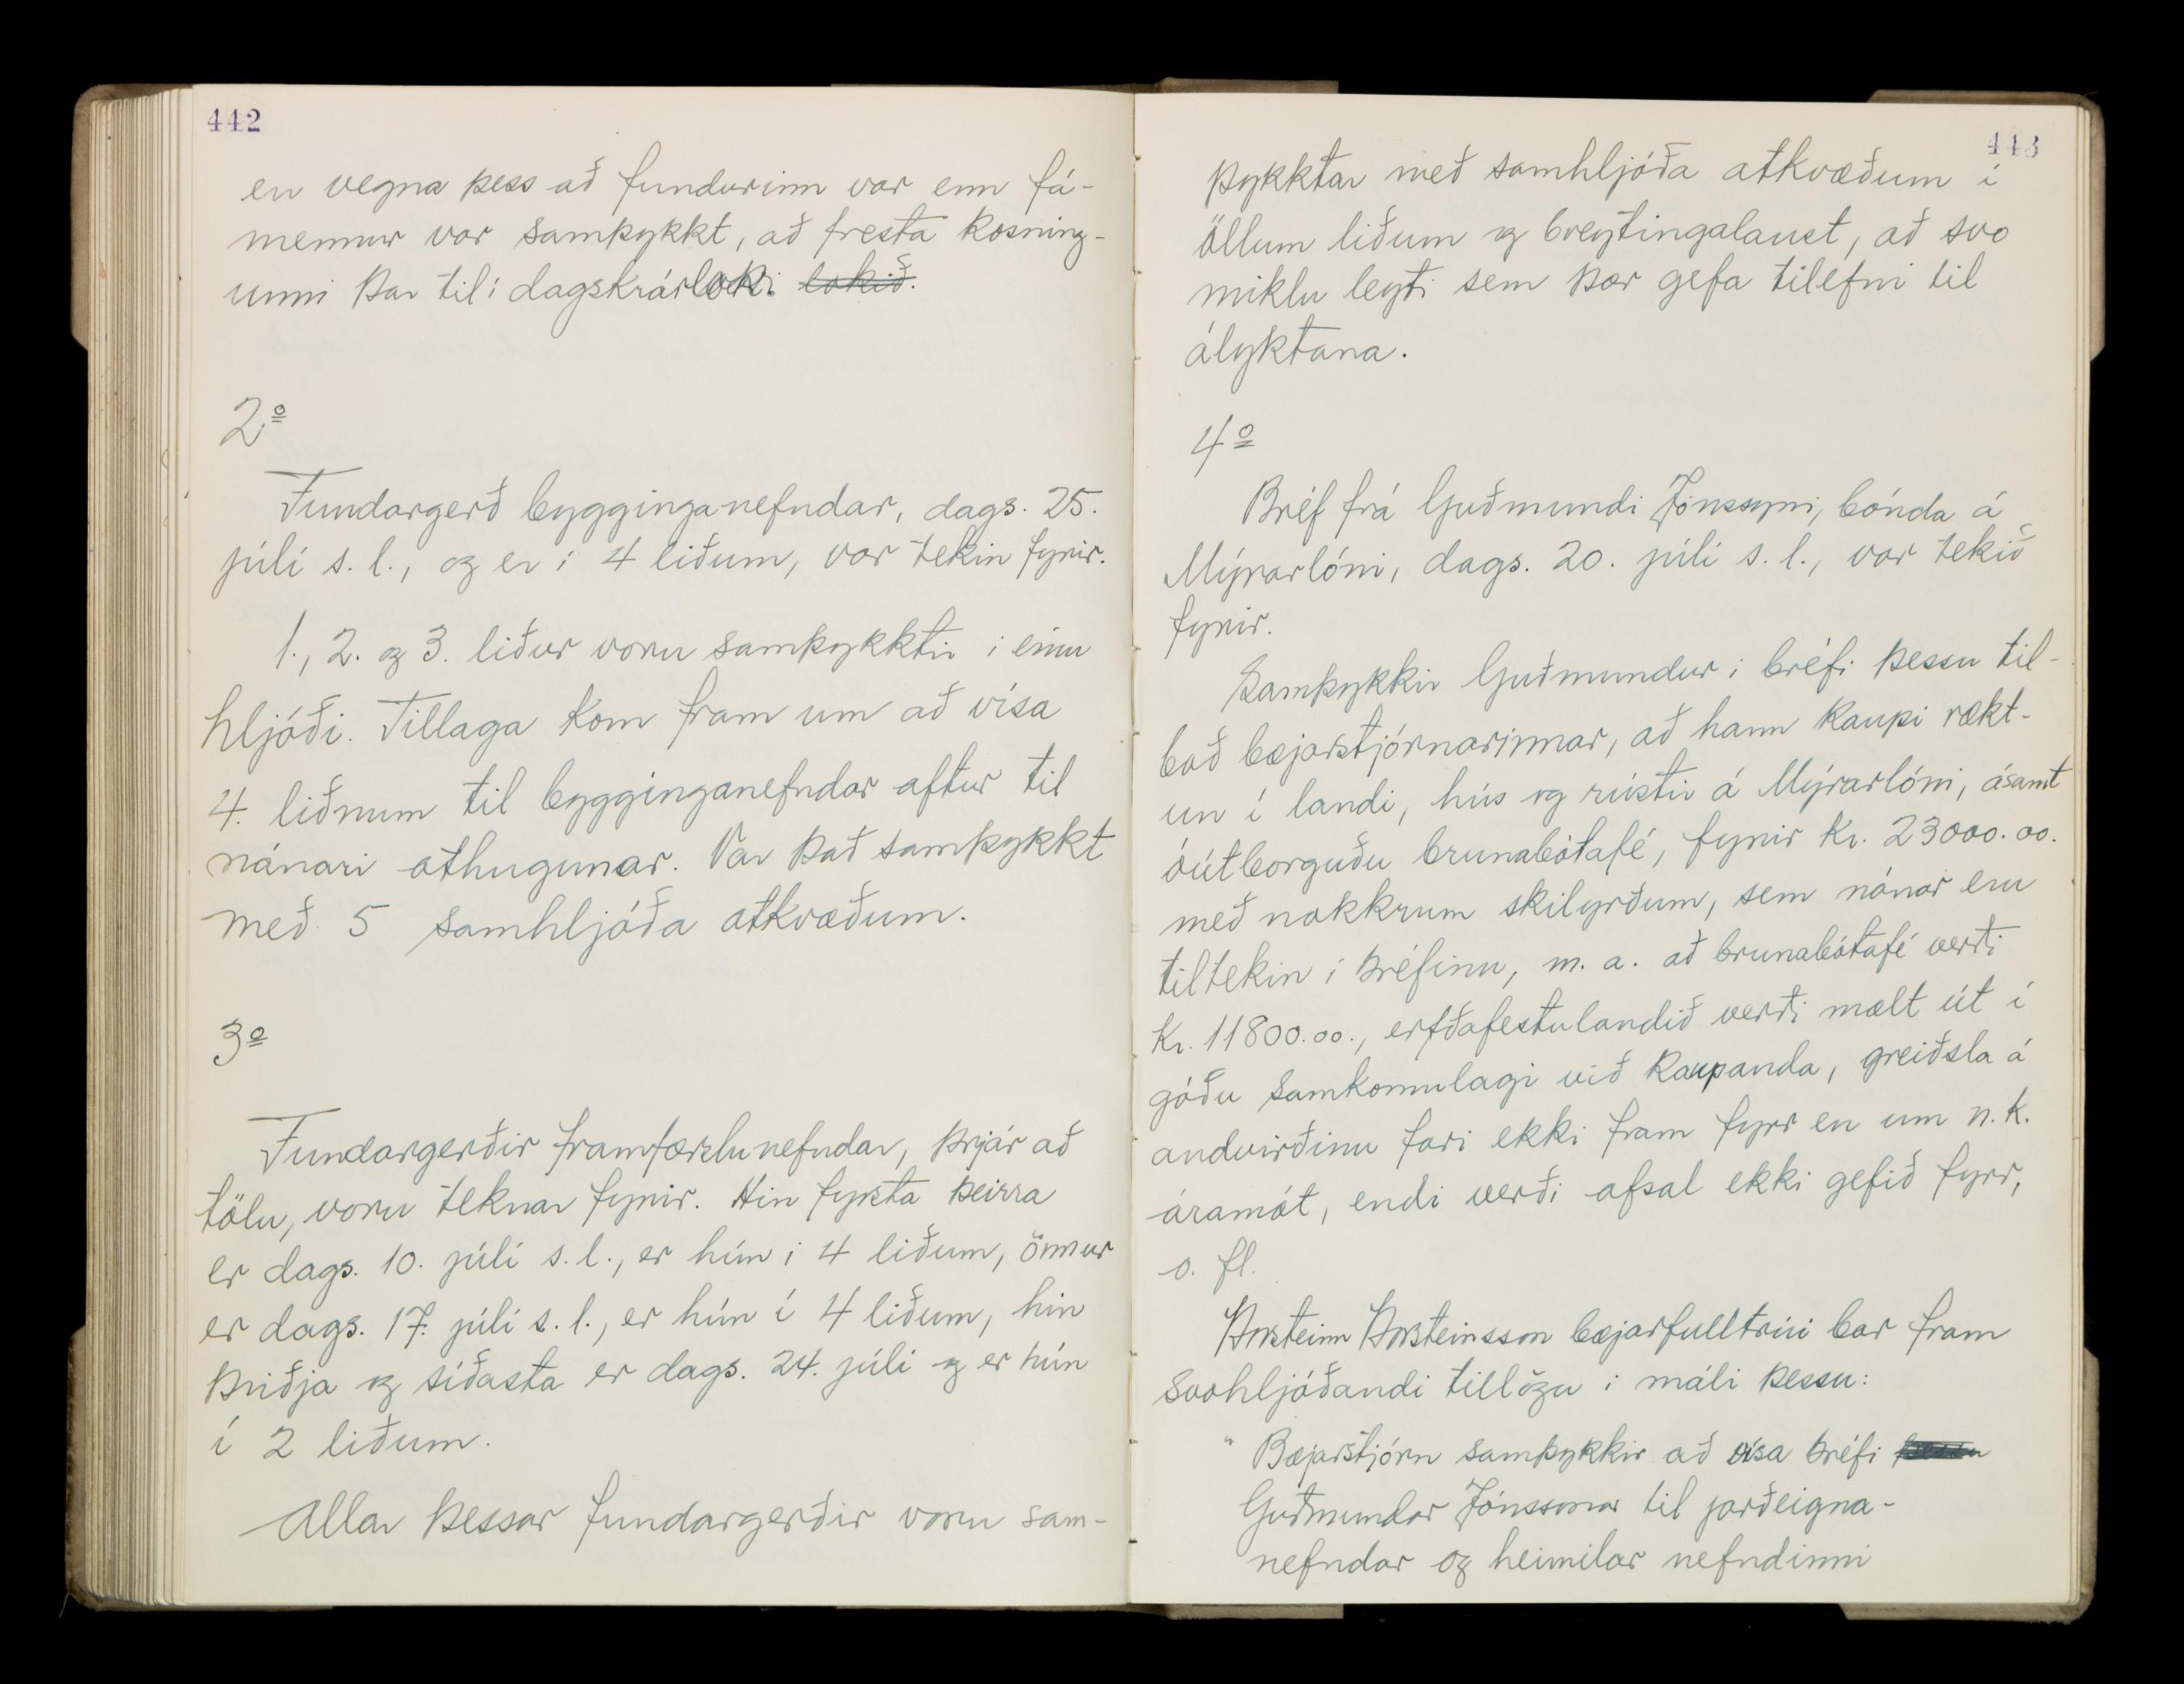 442
en vegna þess að fundurinn var enn fá-
mennur var samþykkt, að fresta kosning-
unni þar til í dagskrárloki lokið.
2º
Fundargerð bygginganefndar, dags. 25.
júlí s.l., og er í 4 liðum, var tekin fyrir.
1., 2. og 3. liður voru samþykktir í einu
hljóði. Tillaga kom fram um að vísa
4. liðnum til bygginganefndar aftur til
nánari athugunar. Var það samþykkt
með 5 samhljóða atkvæðum.
3º
Fundargerðir framfærslunefndar, þrjár að
tölu, voru teknar fyrir. Hin fyrsta þeirra
er dags. 10. júlí s.l., er hún í 4 liðum, önnur
er dags. 17. júlí s.l., er hún í 4 liðum, hin
þriðja og síðasta er dags. 24. júlí og er hún
í 2 liðum.
Allar þessar fundargerðir voru sam-
443
þykktar með samhljóða atkvæðum í
öllum liðum og breytingalaust, að svo
miklu leyti sem þær gefa tilefni til
ályktana.
4º
Bréf frá Guðmundi Jónssyni, bónda á
Mýrarlóni, dags. 20. júlí s.l., var tekið
fyrir.
Samþykkir Guðmundur í bréfi þessu til-
boð bæjarstjórnarinnar, að hann kaupi rækt-
un í landi, hús og rústir á Mýrarlóni, ásamt
óútborguðu brunabótafé, fyrir kr. 23000.00.
með nokkrum skilyrðum, sem nánar eru
tiltekin í bréfinu, m.a. að brunabótafé verði
kr. 11800.00., erfðafestulandið verði mælt út í
góðu samkomulagi við kaupanda, greiðsla á
andvirðinu fari ekki fram fyrr en um n.k.
áramót, endi verði afsal ekki gefið fyrr,
o. fl.
Þorsteinn Þorsteinsson bæjarfulltrúi bar fram
svohljóðandi tillögu í máli þessu:
"Bæjarstjórn samþykkir að vísa bréfi þessu
Guðmundar Jónssonar til jarðeigna-
nefndar og heimilar nefndinni